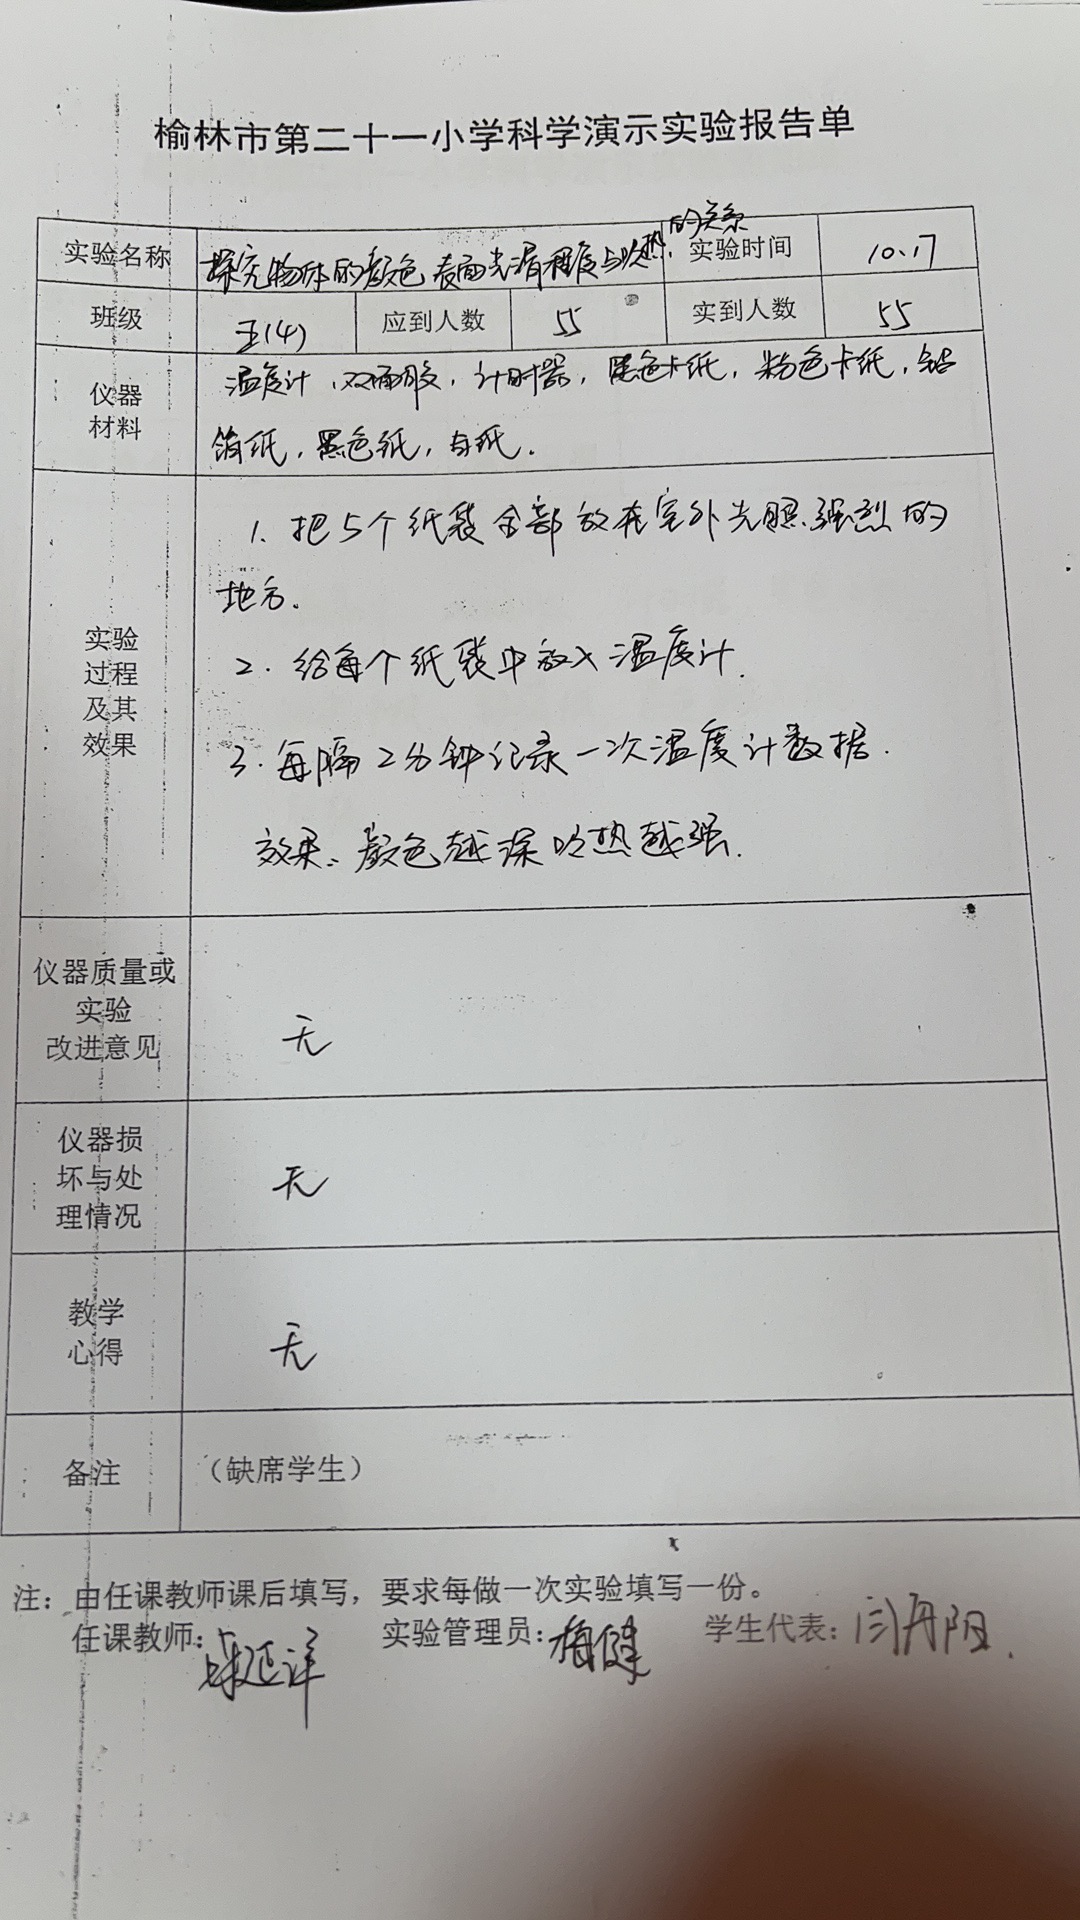 榆林市第二十一小学科学演示实验报告单
实验名称 探究物体的颜色 表面光滑程度与吸热的关系 实验时间 10.17
班级 五(4) 应到人数 55 实到人数 55
仪器
材料
温度计、双面胶，计时器，黑色卡纸，粉色卡纸，铝
箔纸，黑色纸，白纸．
实验
过程
及其
效果
1. 把5个纸袋全部放在室外光照强烈的
地方．
2. 给每个纸袋中放入温度计．
3. 每隔2分钟记录一次温度计数据．
效果：颜色越深吸热越强．
仪器质量或
实验
改进意见
无
仪器损
坏与处
理情况
无
教学
心得
无
备注 （缺席学生）
注：由任课教师课后填写，要求每做一次实验填写一份。
任课教师： 实验管理员：梅健 学生代表：闫丹阳